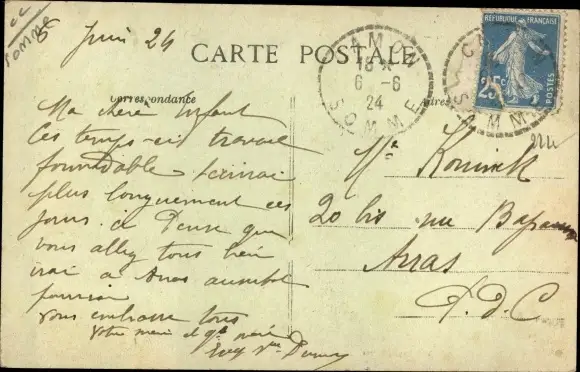 Somme
6 Juin 24
CARTE POSTALE
CAMON
18 *
6 - 6
24
SOMME
CAMON
SOMME
REPUBLIQUE FRANÇAISE
25c
POSTES
Correspondance
Adresse
Ma chère Enfant
Ces temps-ci travail
formidable écrirai
plus longuement ces
jours. Je pense que
vous allez tous bien
irai à Arras aussitôt
pourrai
vous embrasse tous
Votre mère et gd mère
Vve
Me Koninck
20 bis rue Bapaume
Arras
P. D. C